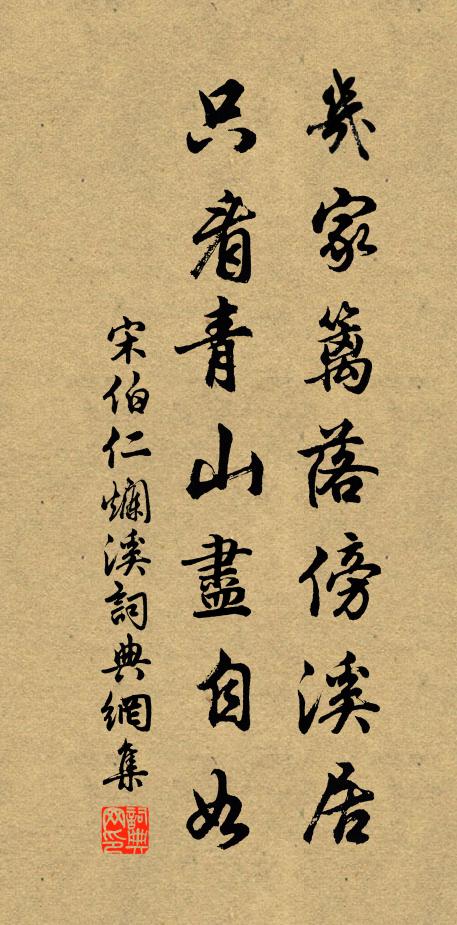 幾家籬落傍溪居
只看青山盡自如
宋伯仁爛溪詞典網集
詞典網印